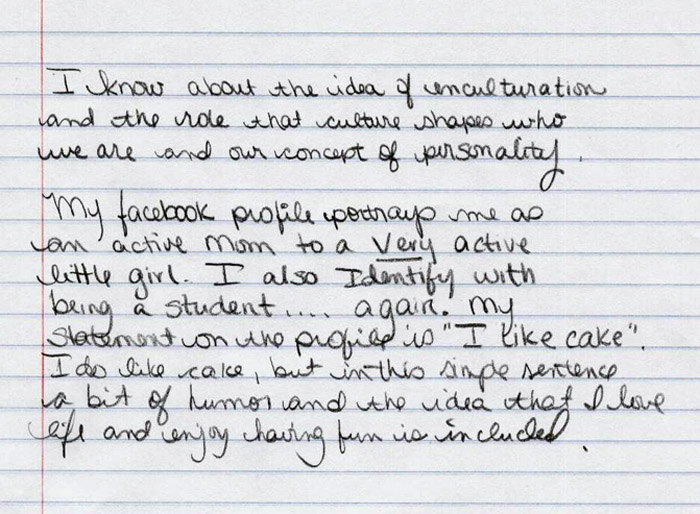 I know about the idea of enculturation
and the role that culture shapes who
we are and our concept of personality.
My facebook profile portrays me as
an active mom to a very active
little girl. I also Identify with
being a student.... again. My
statement on the profile is "I like cake".
I do like cake, but in this simple sentence
a bit of humor and the idea that I love
life and enjoy having fun is included.